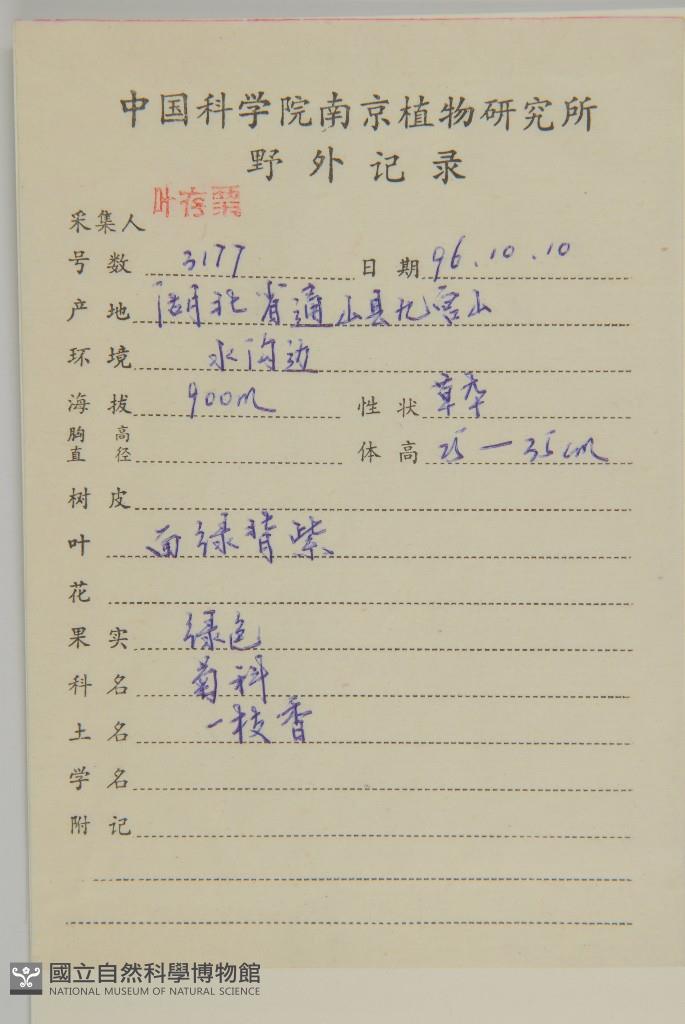 中国科学院南京植物研究所
野外记录
采集人 叶存粟
号数 3177 日期 96.10.10
产地 湖北省通山县九宫山
环境 水沟边
海拔 900m 性状 草本
胸高直径 体高 25—35cm
树皮
叶 面绿背紫
花
果实 绿色
科名 菊科
土名 一枝香
学名
附记
國立自然科學博物館
NATIONAL MUSEUM OF NATURAL SCIENCE